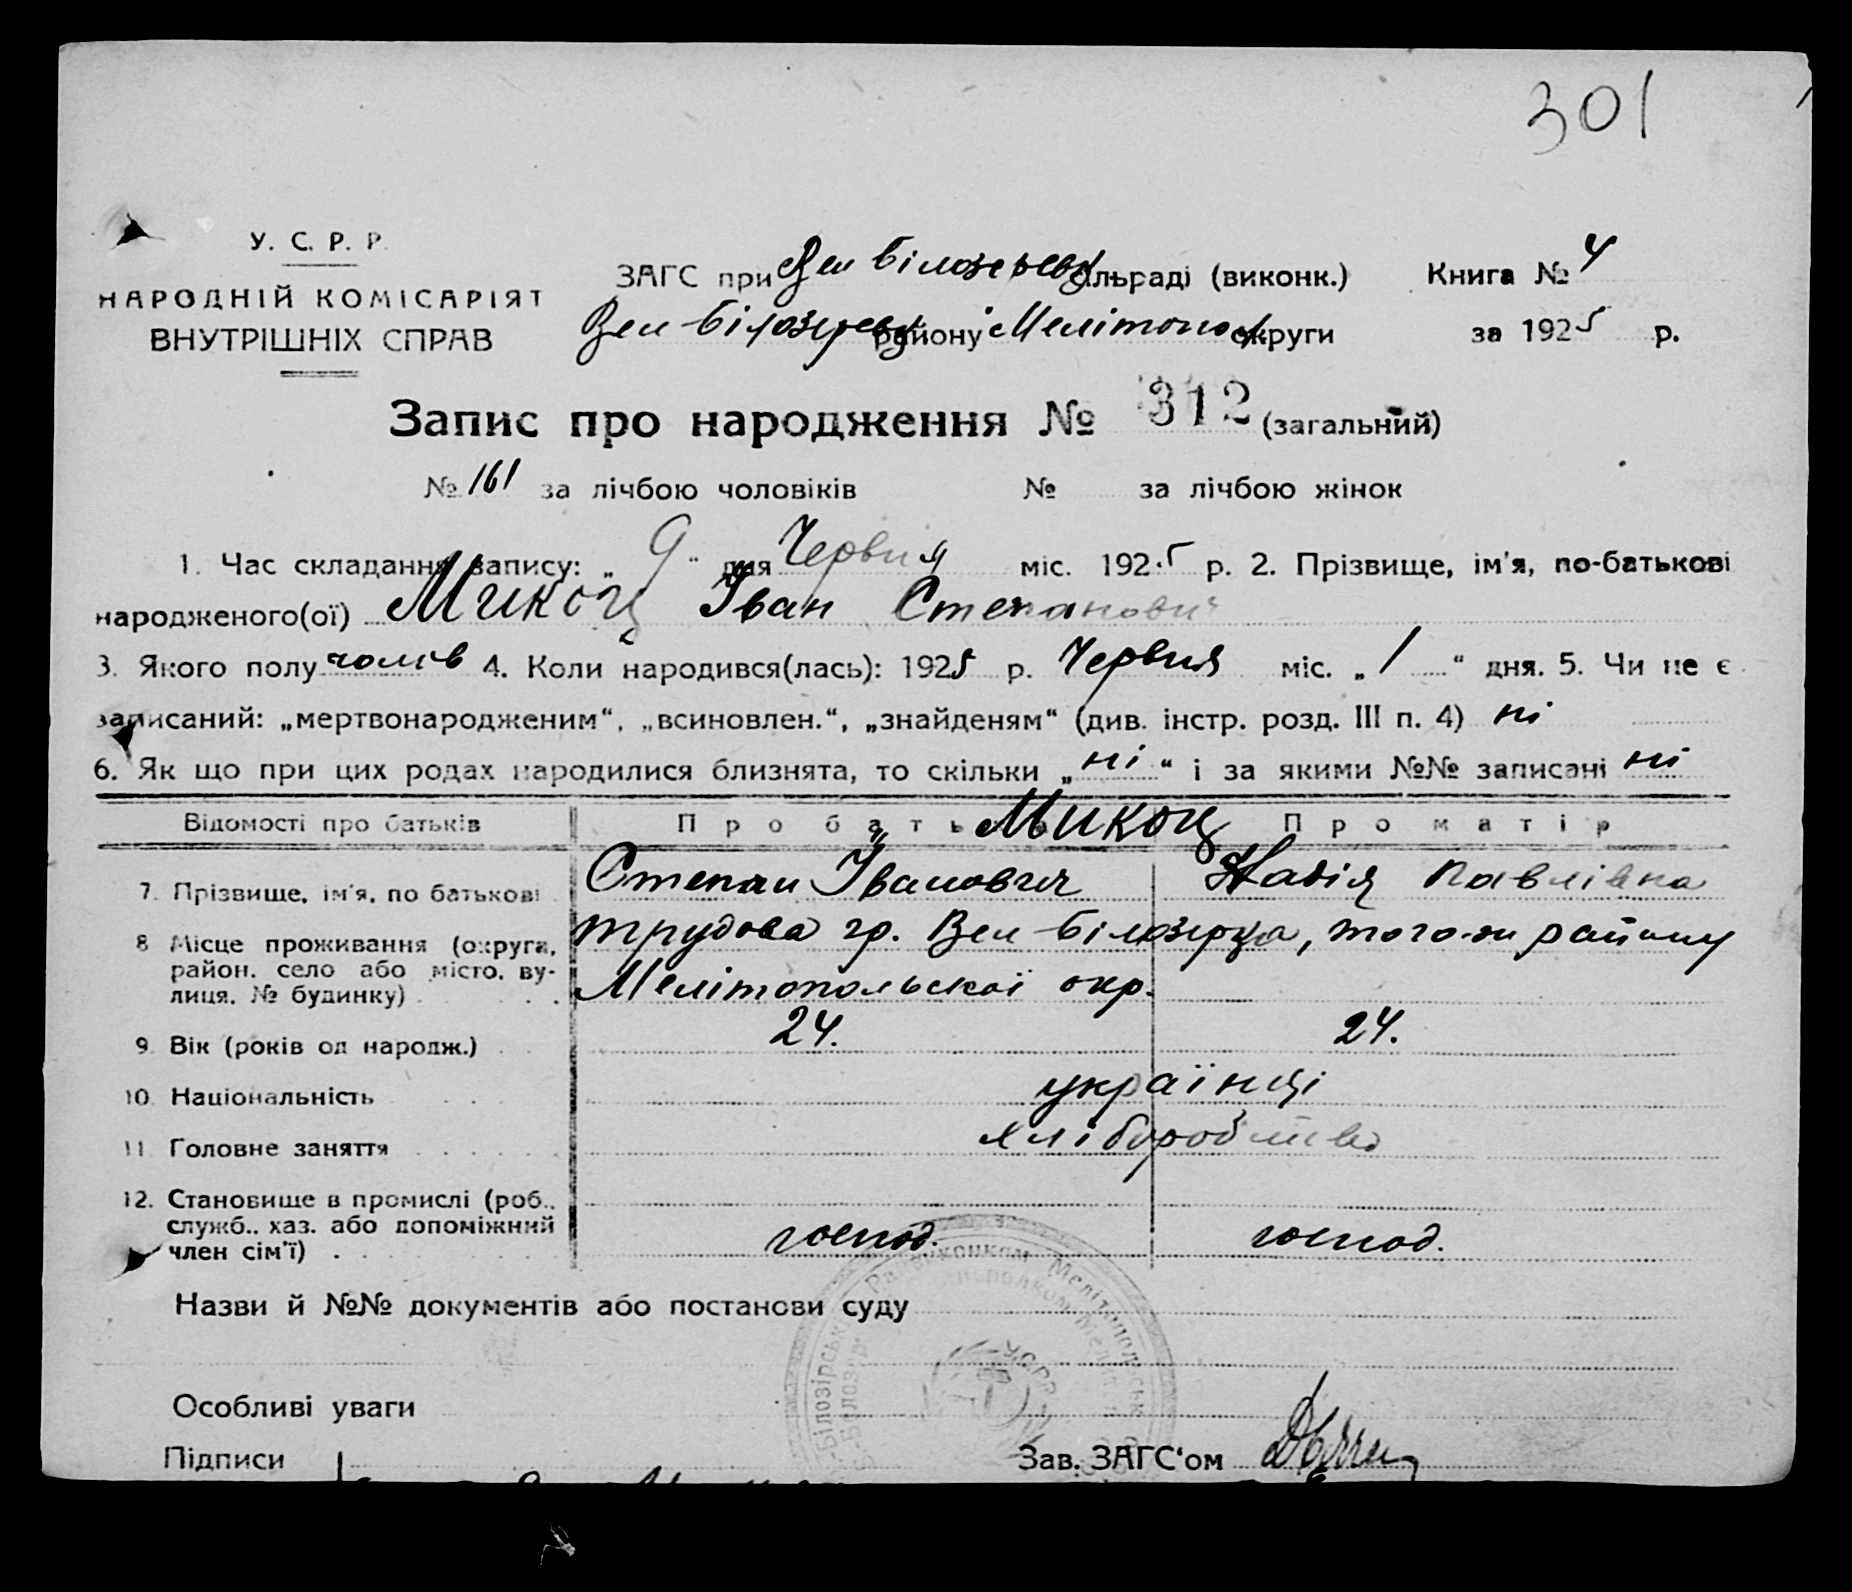 301
У. С. Р. Р.
НАРОДНІЙ КОМІСАРІЯТ
ВНУТРІШНІХ СПРАВ
ЗАГС при Вел Білозерськ сільраді (виконк.) Книга № 4
Вел-Білозерськ району Мелітопол. округи за 1925 р.
Запис про народження № 312 (загальний)
№ 161 за лічбою чоловіків № за лічбою жінок
1. Час складання запису: „ 9 " дня Червня міс. 1925 р. 2. Прізвище, ім'я, по-батькові
народженого(ої) Микоц Іван Степанович
3. Якого полу чолів 4. Коли народився(лась): 1925 р. Червня міс. „ 1 " дня. 5. Чи не є
записаний: „мертвонародженим", „всиновлен.", „знайденям" (див. інстр. розд. III п. 4) ні
6. Як що при цих родах народилися близнята, то скільки „ ні " і за якими №№ записані ні
Відомості про батьків Про батька Микоц Про матір
7. Прізвище, ім'я, по батькові Степан Іванович Надія Павлівна
8 Місце проживання (округа, район, село або місто, вулиця, № будинку) трудова гр. Вел-Білозерка, того-ж району
Мелітопольскої окр.
9. Вік (років од народж.) 24. 24.
10. Національність українці
11. Головне заняття хліборобство
12. Становище в промислі (роб.,
служб., хаз. або допоміжний
член сім'ї) господ. господ.
Назви й №№ документів або постанови суду
Особливі уваги
Підписи Зав. ЗАГС'ом